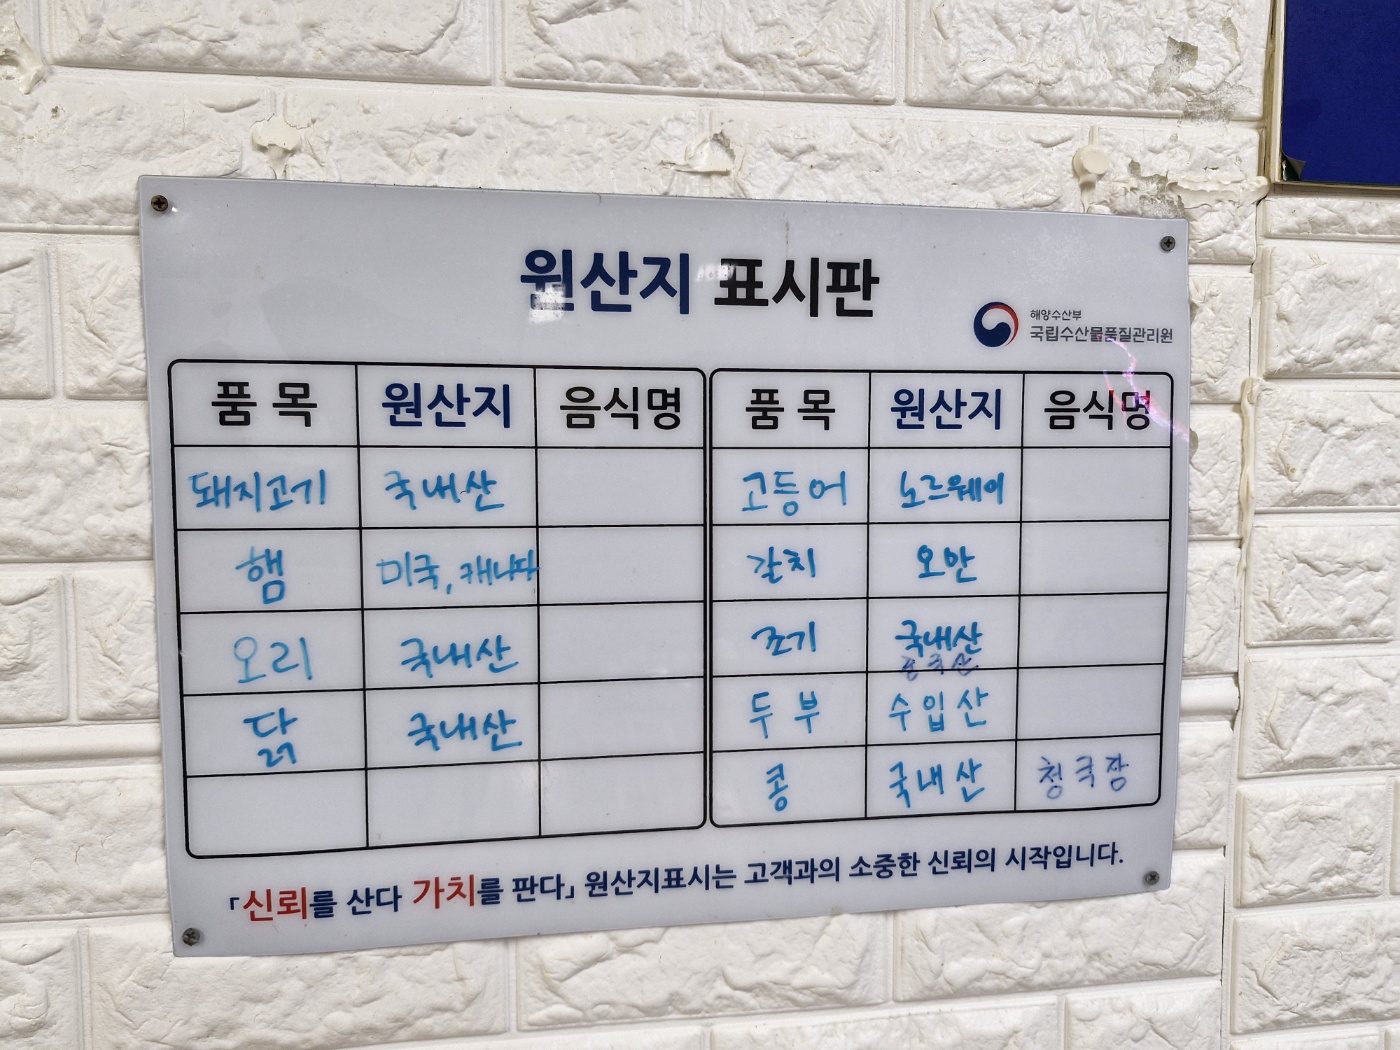 원산지 표시판
해양수산부
국립수산물품질관리원
품 목 원산지 음식명
돼지고기 국내산
햄 미국, 캐나다
오리 국내산
닭 국내산
품 목 원산지 음식명
고등어 노르웨이
갈치 오만
조기 국내산
중국산
두부 수입산
콩 국내산 청국장
「신뢰를 산다 가치를 판다」 원산지표시는 고객과의 소중한 신뢰의 시작입니다.